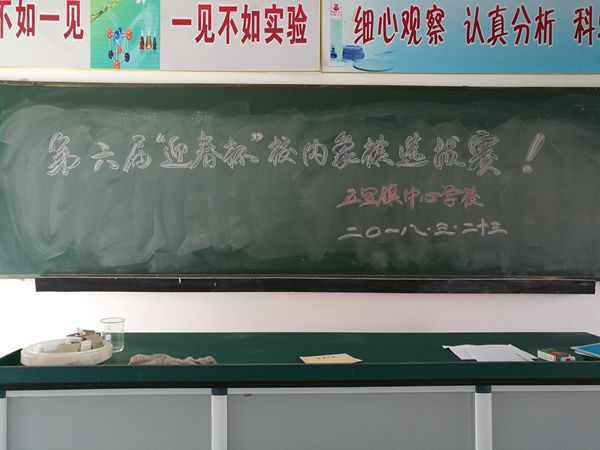 不如一见
一见不如实验
细心观察 认真分析 科
第六届“迎春杯”校内象棋选拔赛！
五里镇中心学校
二〇一八.三.二十三